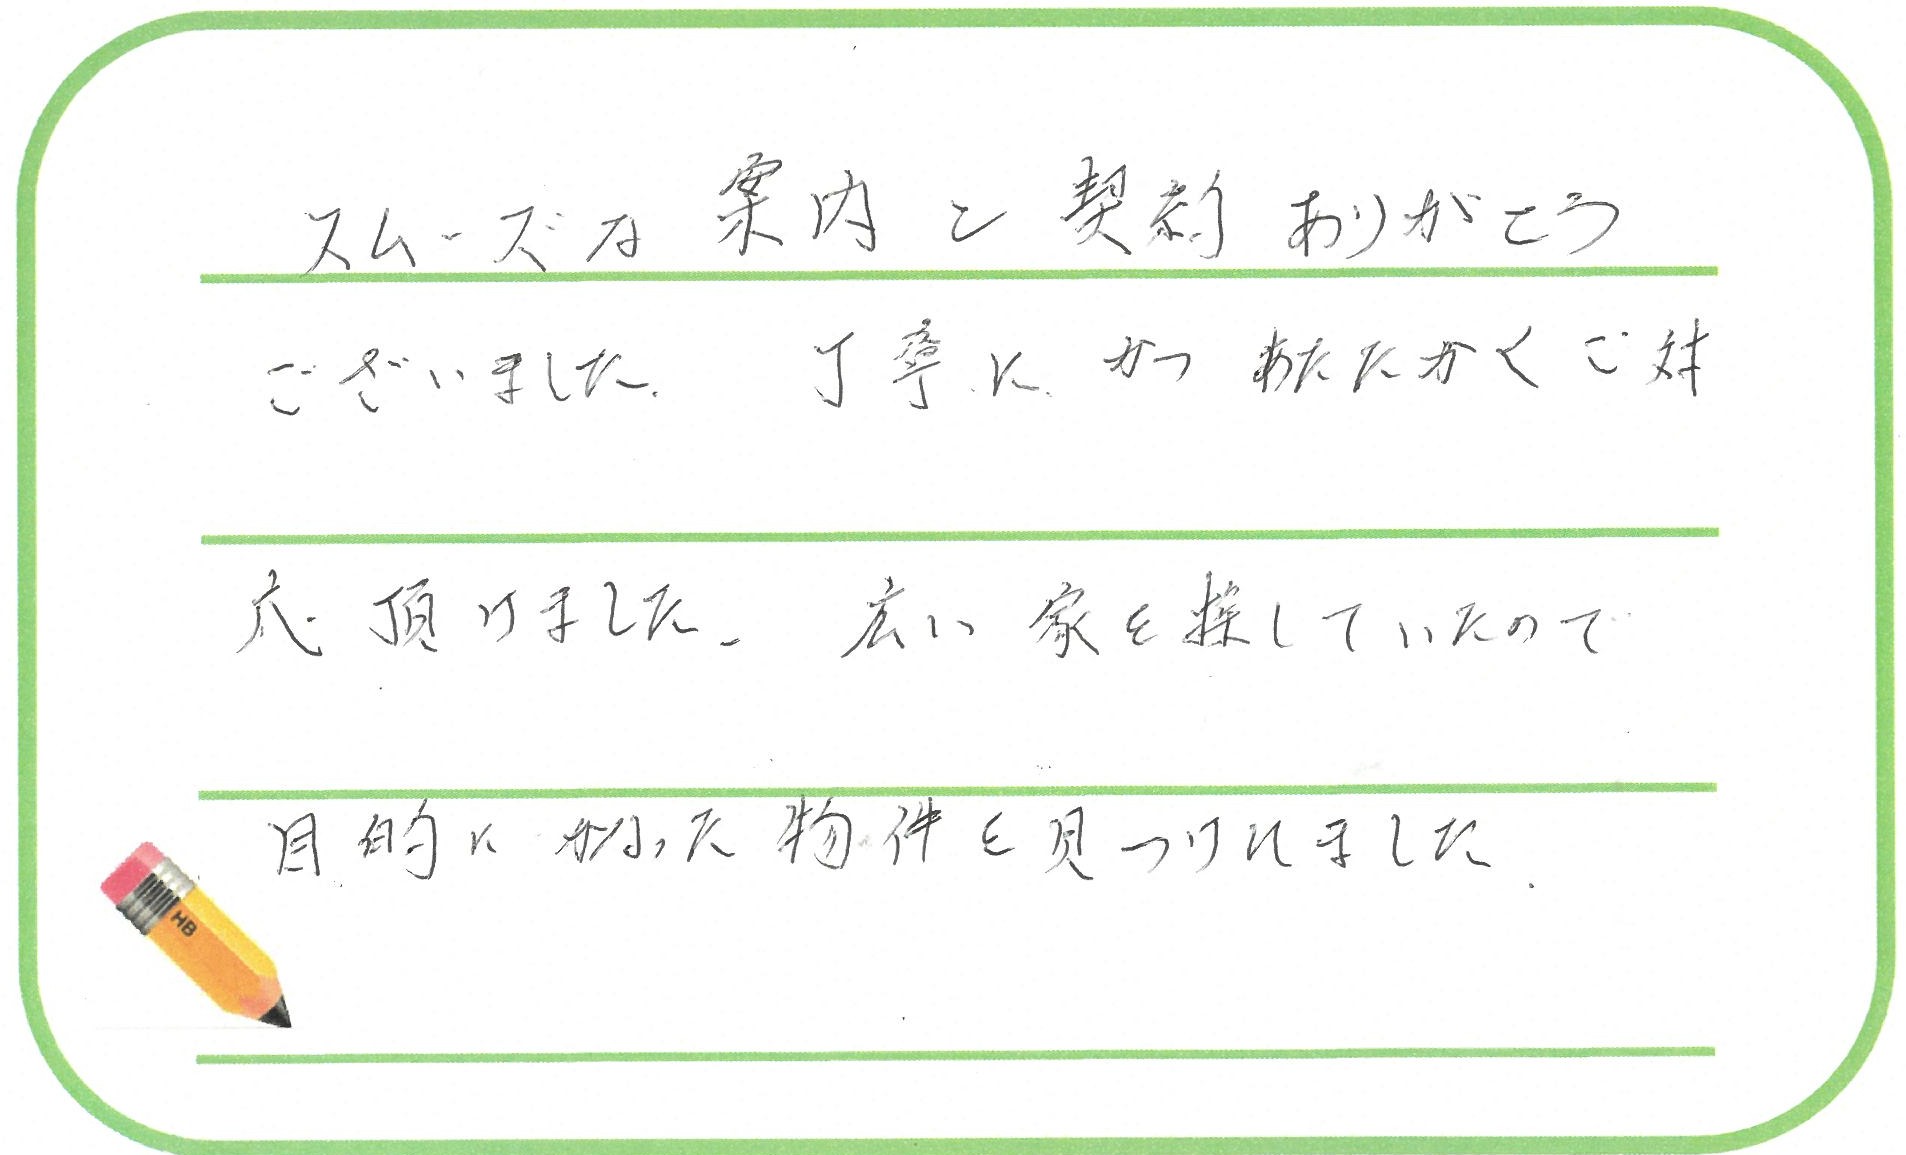 スムーズな案内と契約ありがとう
ございました。丁寧にかつあたたかくご対
応頂けました。広い家を探していたので
目的にかなった物件を見つけれました。
HB